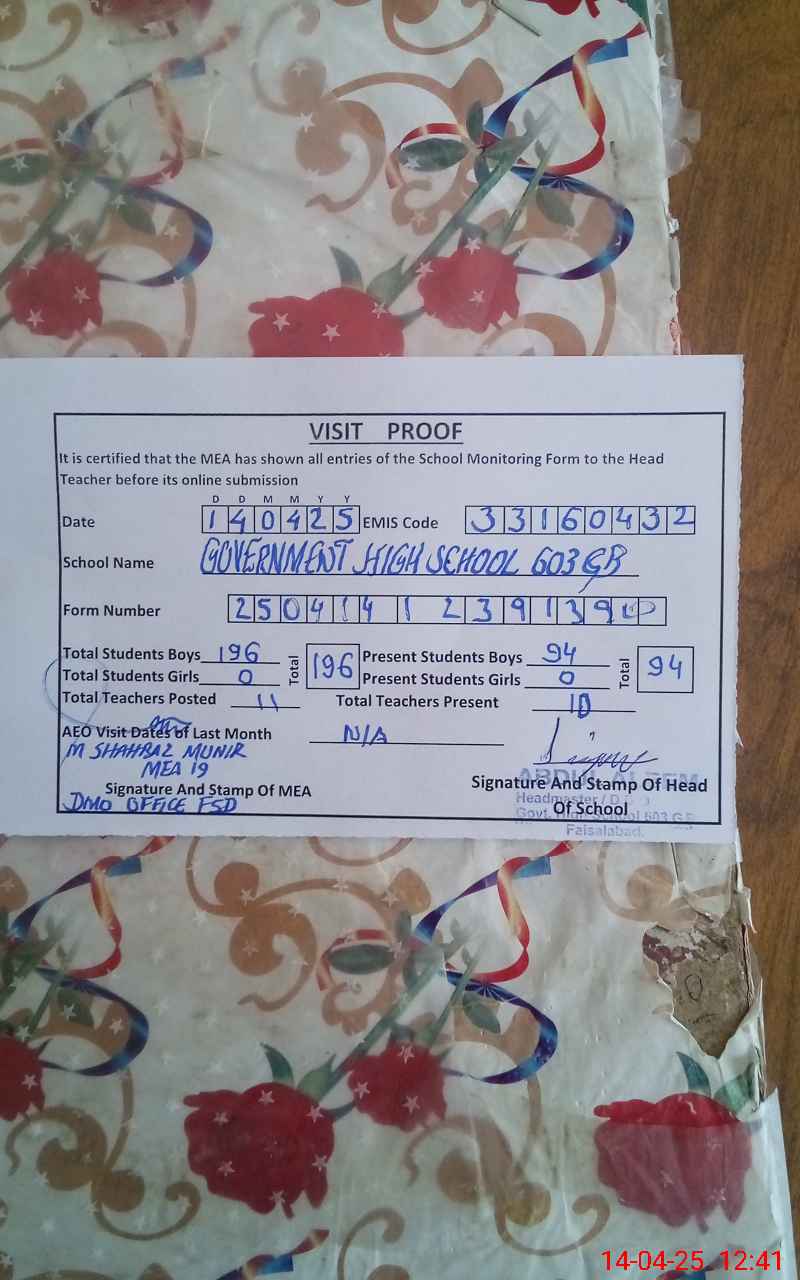 VISIT PROOF
It is certified that the MEA has shown all entries of the School Monitoring Form to the Head
Teacher before its online submission
D D M M Y Y
Date 140425 EMIS Code 33160432
School Name GOVERNMENT HIGH SCHOOL 603 GB
Form Number 250414 1 239139
Total Students Boys 196 Total 196 Present Students Boys 94 Total 94
Total Students Girls 0 Present Students Girls 0
Total Teachers Posted 11 Total Teachers Present 10
AEO Visit Dates of Last Month N/A
M SHAHBAZ MUNIR
MEA 19
Signature And Stamp Of MEA
DMO OFFICE FSD
Signature And Stamp Of Head
Of School
ABDUL ALEEM
Headmaster / D.D.O
Govt. High School 603 G.B
Faisalabad.
14-04-25 12:41